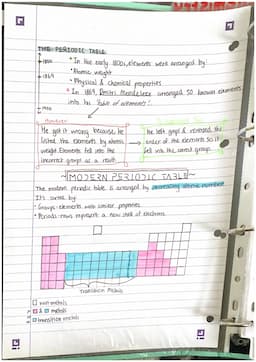 THE PERIODIC TABLE
1800
* In the early 1800s, elements were arranged by:
* Atomic weight
1869
* Physical & chemical properties
* In 1869, Dmitri Mendeleev arranged 50 known elements
into his 'Table of elements'.
1900
However
He got it wrong because he
listed the elements by atomic
weight. Elements fell into the
incorrect groups as a result.
He left gaps & reversed the
order of the elements so it
fell into the correct group.
~MODERN PERIODIC TABLE~
The modern periodic table is arranged by increasing atomic number
It's sorted by:
Groups: elements with similar properties
Periods: rows represent a new shell of electrons
Transition Metals
non metals
metals
transition metals